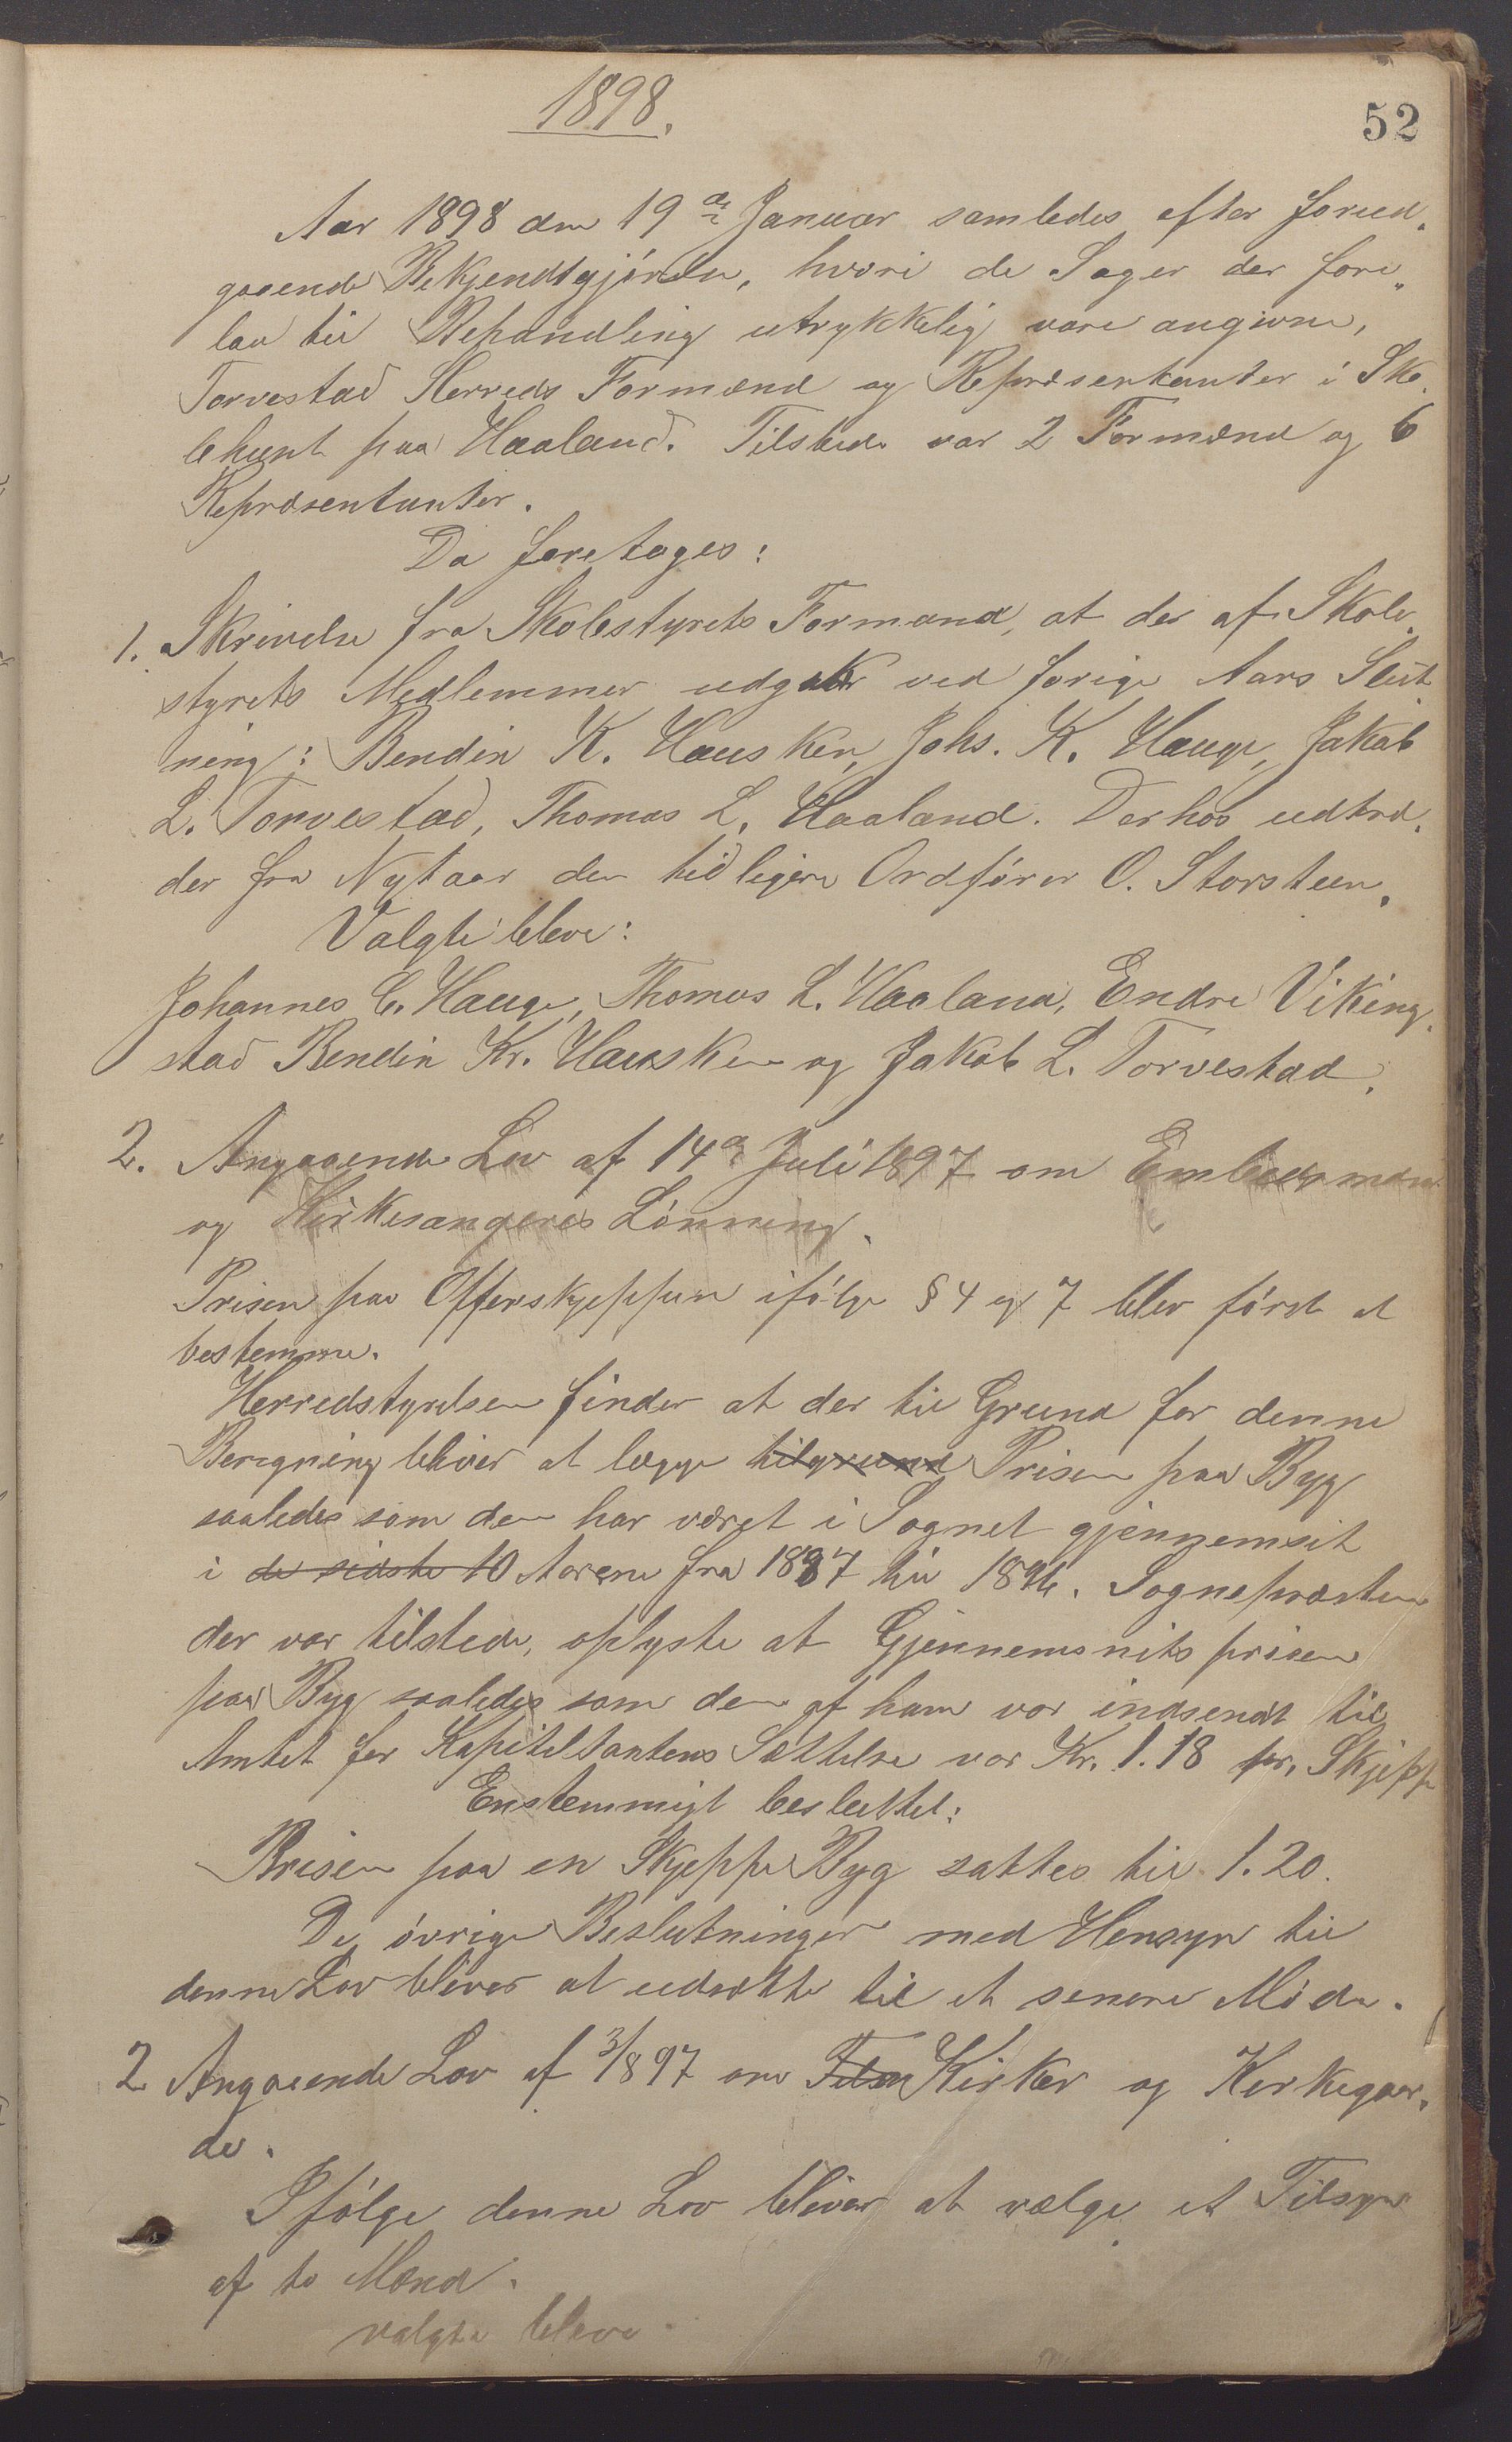 1898.
52
Aar 1898 den 19de Januar samledes efter forud,
gaaende Bekjendtgjørelse, hvori de Sager der fore„
laa til Behandling utrykkelig vare angivne,
Torvestad Herreds Formænd og Repræsentanter i Sko„
lehuset paa Haaland. Tilstede var 2 Formænd og 6
Repræsentanter.
Da foretoges:
1. Skrivelse fra Skolestyrets Formand, at der af Skole„
styrets Medlemmer udgik ved forige Aars Slut
ning: Bendin K. Hausken, Johs. K. Hauge, Jakob
L. Torvestad, Thomas L. Haaland. Derhos udtræ„
der fra Nytaar den tidligere Ordfører O. Storsteen.
Valgte bleve:
Johannes C. Hauge, Thomas L. Haaland, Endre Viking„
stad Bendin Kr. Hausken og Jakob L. Torvestad.
2. Angaaende Lov af 14de Juli 1897 om Embedsmænd
og Kirkesangeres Lønning.
Prisen paa Offerskjeppen ifølge § 4 og 7 blev først at
bestemme.
Herredstyrelsen finder at der til Grund for denne
Beregning bliver at lægge tilgrund Prisen paa Byg
saaledes som den har været i Sognet gjennemsit
i de sidste 10 Aarene fra 1887 til 1896. Sognepræsten
der var tilstede, oplyste at Gjennemsnitsprisen
paa Byg saaledes som den af ham var indsendt til
Amtet for Kapiteltaxtens Sættelse var Kr. 1.18 pr. Skjeppe
Enstemmigt besluttet:
Prisen paa en Skjeppe Byg sattes til 1.20.
De øvrige Beslutninger med Hensyn til
denne Lov bliver at udsætte til et senere Møde.
2 Angaaende Lov af 3/8 97 om Kirker og Kirkegaar„
de.
Ifølge denne Lov bliver at vælge et Tilsyn
af to Mænd.
valgte bleve